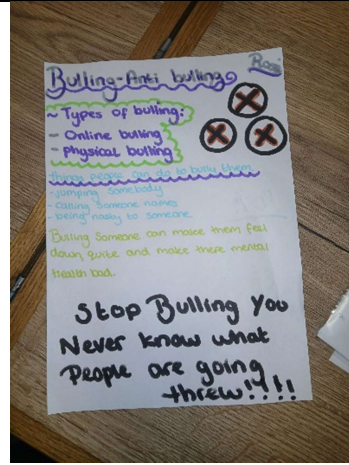 Bulling-Anti bulling
Rosa
~ Types of bulling:
- Online bulling
- Physical bulling
things people can do to bully them
- jumping somebody
- calling someone names
- being nasty to someone
Bulling someone can make them feel
down, quite and make there mental
Health bad.
Stop Bulling You
Never know what
People are going
threw!!!!